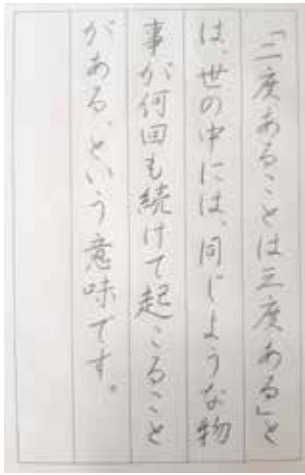 「二度あることは三度ある」と
は、世の中には、同じような物
事が何回も続けて起こること
がある、という意味です。